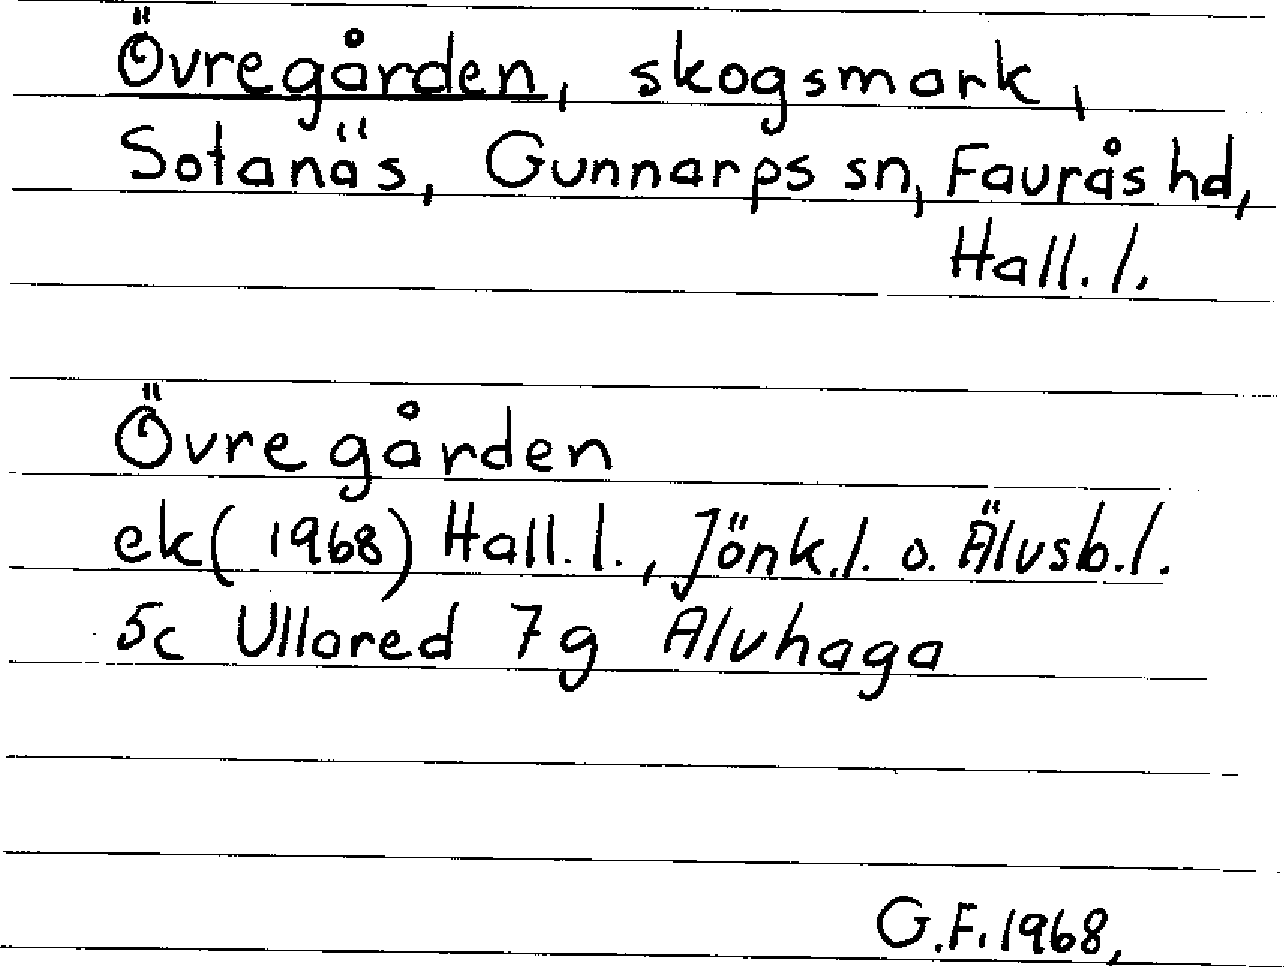 Övregården, skogsmark,
Sotanäs, Gunnarps sn, Faurås hd,
Hall. l.
Övregården
ek (1968) Hall. l., Jönk. l. o. Älvsb. l.
5c Ullared 7g Alvhaga
G.F. 1968,